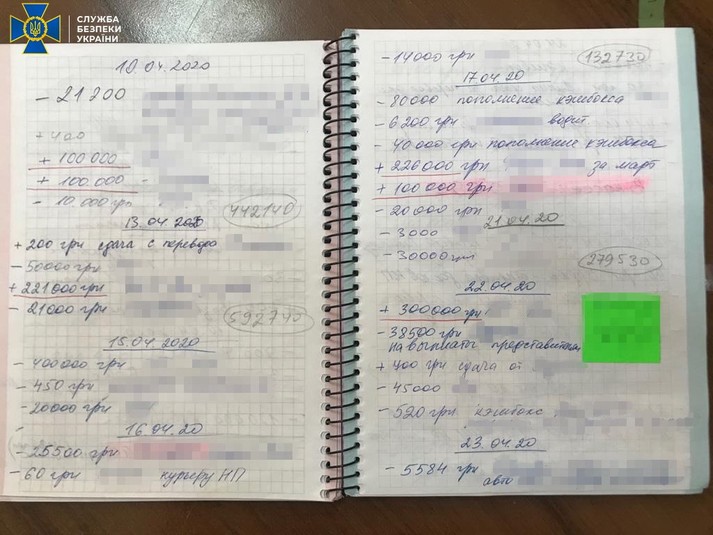 СЛУЖБА
БЕЗПЕКИ
УКРАЇНИ
10.04.2020
- 21200
+ 400
+ 100 000
+ 100.000 -
- 10.000 грн
442140
13.04.2020
+ 200 грн сдача с перевода
- 50000 грн
+ 221000 грн
- 21000 грн
592740
15.04.2020
- 400000 грн
- 450 грн
- 20000 грн
16.04.20
- 25500 грн
- 60 грн курьеру НП
- 14000 грн
132730
17.04.20
- 80000 пополнение кэшбокса
- 6200 грн водит
- 40000 грн пополнение кэшбокса
+ 226000 грн за март
+ 100 000 грн
- 20000 грн
21.04.20
- 3000
- 30000 грн
279530
22.04.20
+ 300000 грн
- 38500 грн
на выплаты
+ 400 грн сдача от
- 45000
- 520 грн кэшбокс
23.04.20
- 5584 грн
авто